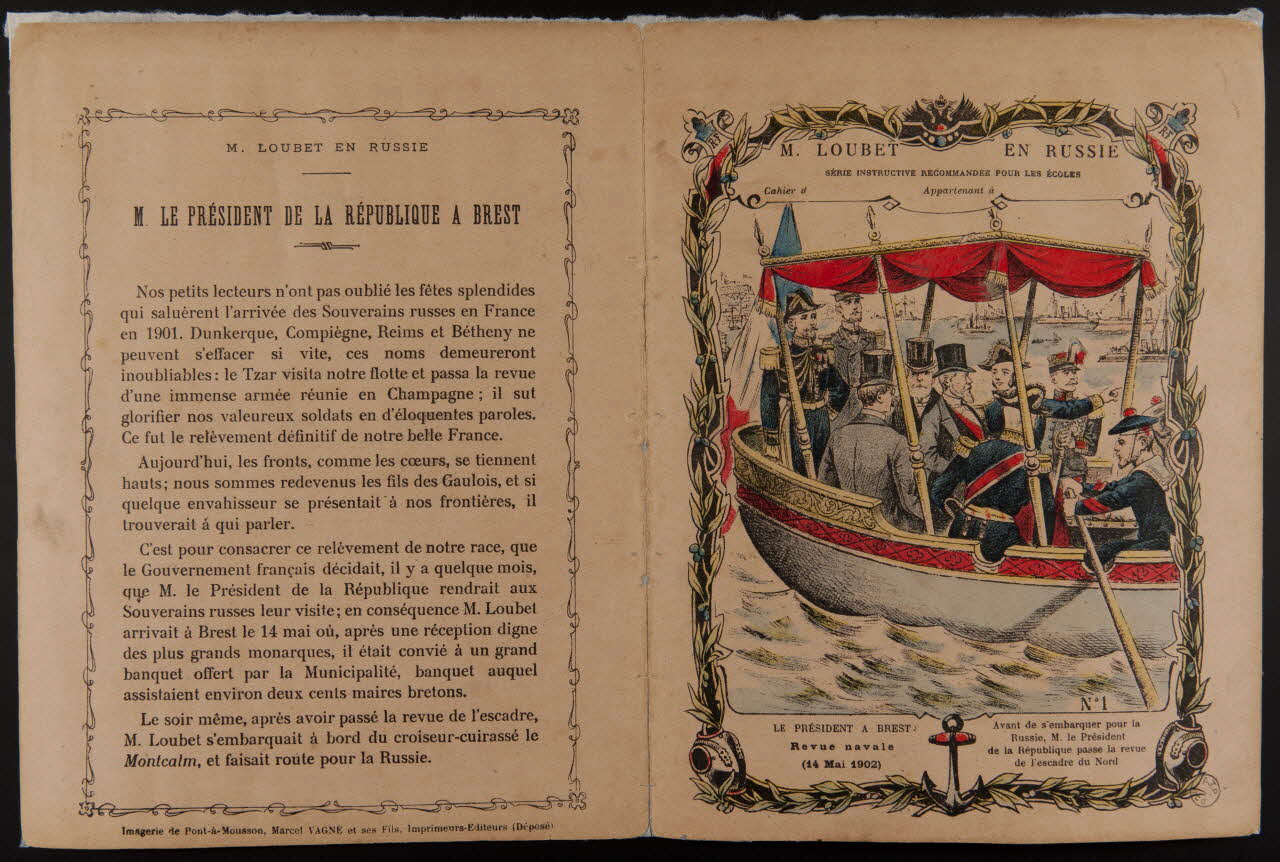 M. LOUBET EN RUSSIE
M. LE PRÉSIDENT DE LA RÉPUBLIQUE A BREST
Nos petits lecteurs n'ont pas oublié les fêtes splendides
qui saluèrent l'arrivée des Souverains russes en France
en 1901. Dunkerque, Compiègne, Reims et Bétheny ne
peuvent s'effacer si vite, ces noms demeureront
inoubliables : le Tzar visita notre flotte et passa la revue
d'une immense armée réunie en Champagne ; il sut
glorifier nos valeureux soldats en d'éloquentes paroles.
Ce fut le relèvement définitif de notre belle France.
Aujourd'hui, les fronts, comme les cœurs, se tiennent
hauts ; nous sommes redevenus les fils des Gaulois, et si
quelque envahisseur se présentait à nos frontières, il
trouverait á qui parler.
C'est pour consacrer ce relèvement de notre race, que
le Gouvernement français décidait, il y a quelque mois,
que M. le Président de la République rendrait aux
Souverains russes leur visite ; en conséquence M. Loubet
arrivait à Brest le 14 mai où, après une réception digne
des plus grands monarques, il était convié à un grand
banquet offert par la Municipalité, banquet auquel
assistaient environ deux cents maires bretons.
Le soir même, après avoir passé la revue de l'escadre,
M. Loubet s'embarquait à bord du croiseur-cuirassé le
Montcalm, et faisait route pour la Russie.
Imagerie de Pont-à-Mousson, Marcel VAGNÉ et ses Fils, Imprimeurs-Editeurs (Déposé)
RF
RF
M. LOUBET EN RUSSIE
SÉRIE INSTRUCTIVE RECOMMANDÉE POUR LES ÉCOLES
Cahier d
Appartenant à
N°1
LE PRÉSIDENT A BREST :
Revue navale
(14 Mai 1902)
Avant de s'embarquer pour la
Russie, M. le Président
de la République passe la revue
de l'escadre du Nord